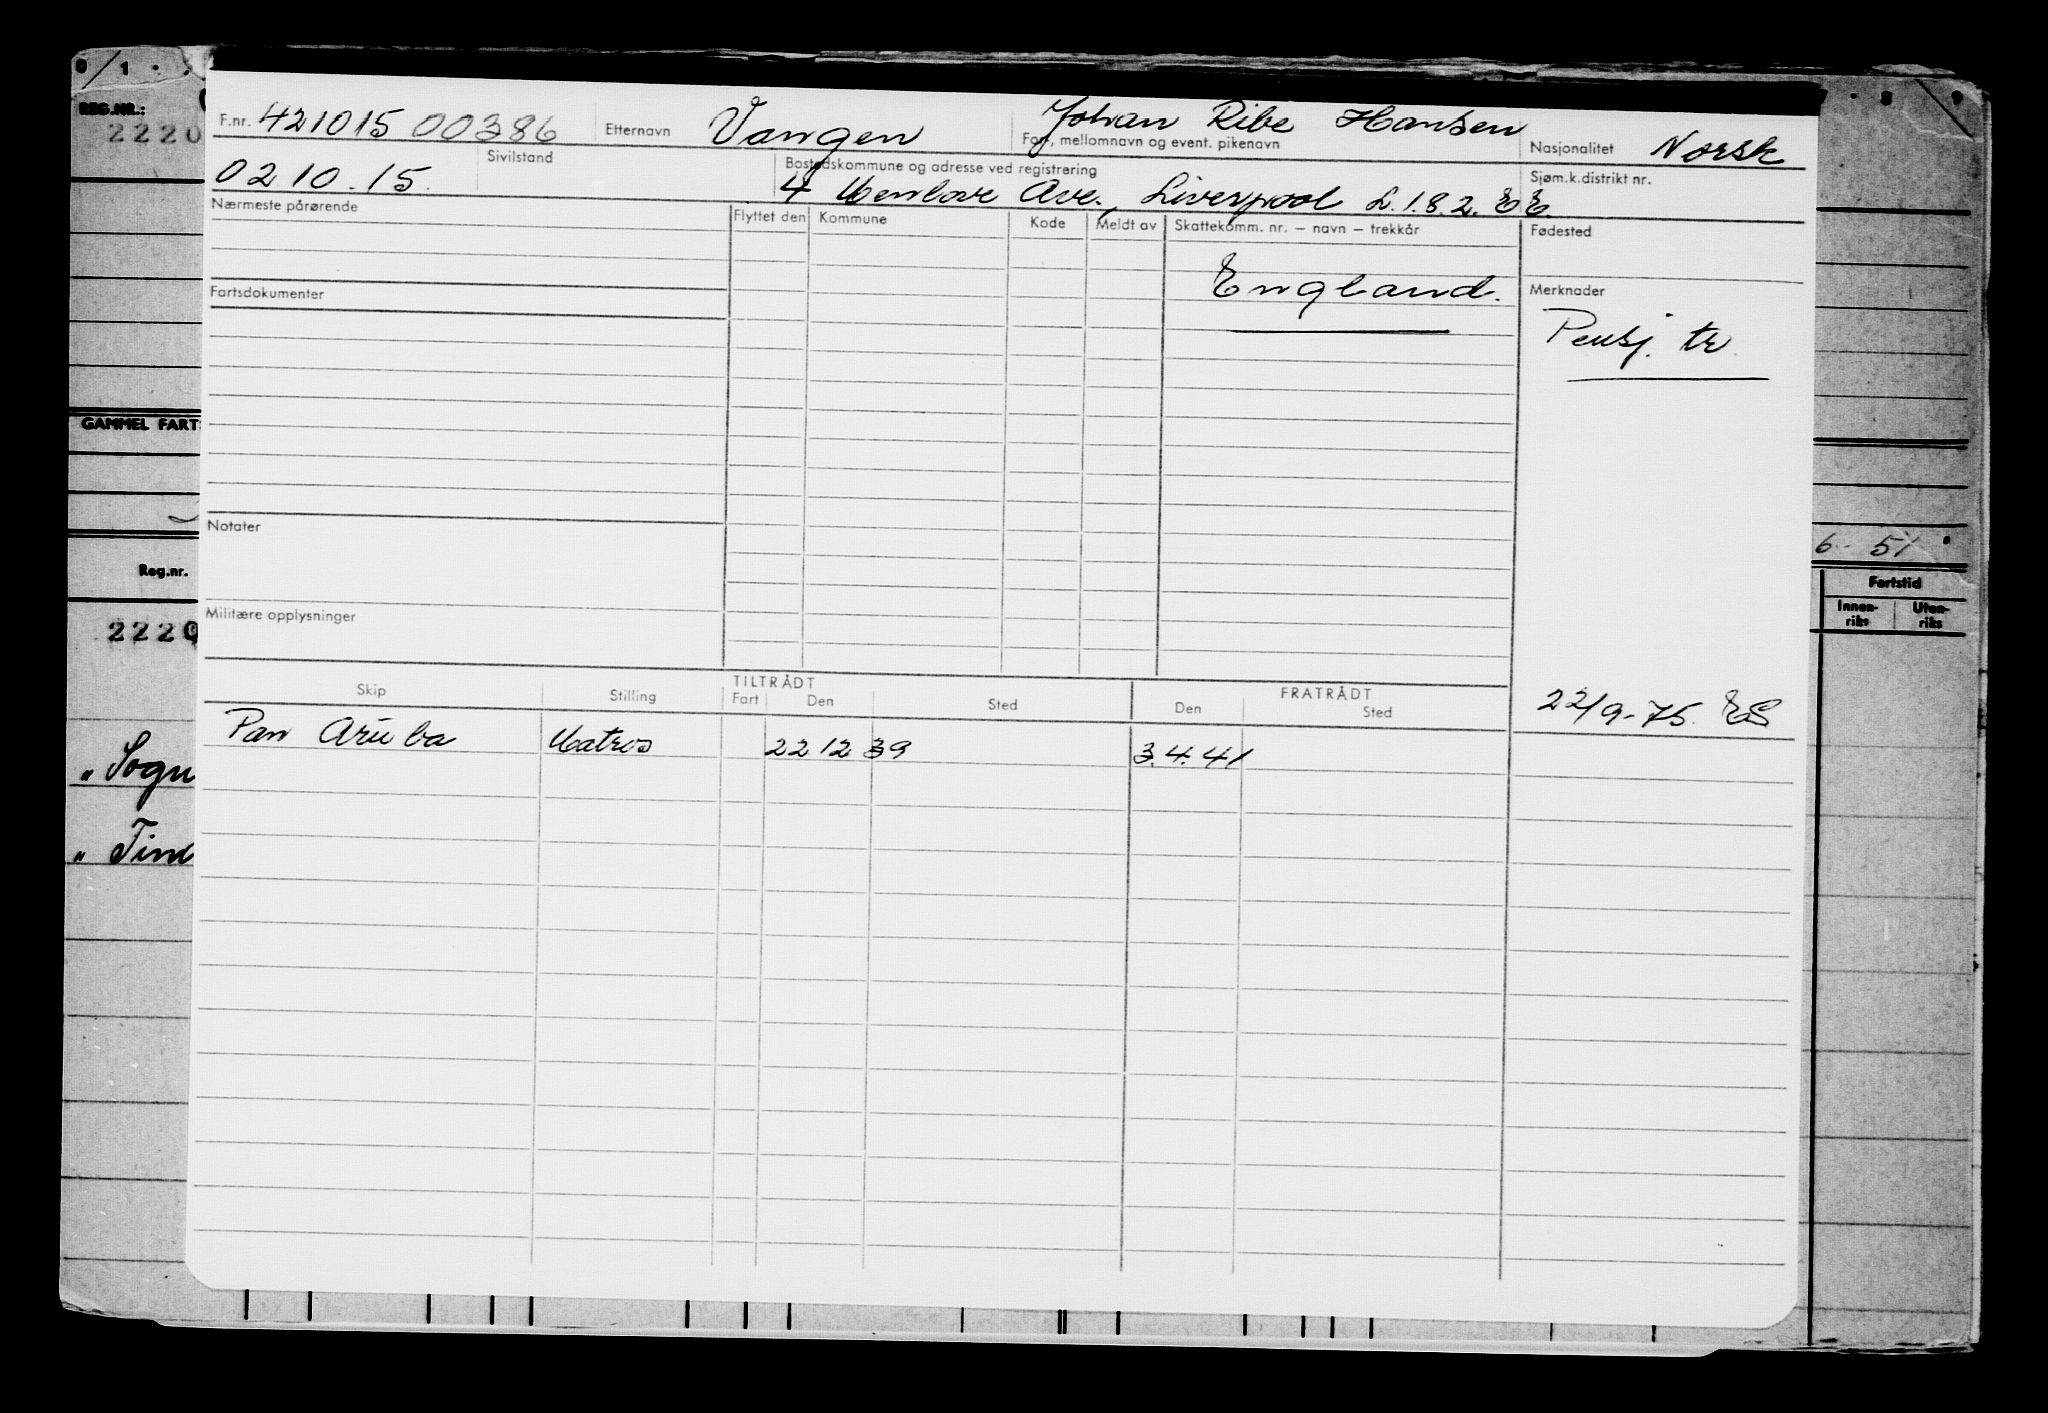 0 1 7 8 9
REG.NR.:
2220
F.nr. 421015 00386 Etternavn Vangen Johan Ribe Hansen
For-, mellomnavn og event. pikenavn Nasjonalitet Norsk
0210.15. Sivilstand Bostedskommune og adresse ved registrering Sjøm.k.distrikt nr.
4 Menlove Ave., Liverpool L.1.8.2. EE
Nærmeste pårørende Flyttet den Kommune Kode Meldt av Skattekomm. nr. – navn – trekkår Fødested
England.
Fartsdokumenter Merknader
Pensj. tr.
GAMMEL FART
Notater
6 - 51
Reg.nr. Fartstid
Innen-riks Uten-riks
Militære opplysninger
2220
TILTRÅDT FRATRÅDT
Skip Stilling Fart Den Sted Den Sted
22/9-75. ES
Pan Aruba Matros 22 12 39 3.4.41
" Sogn
" Tind